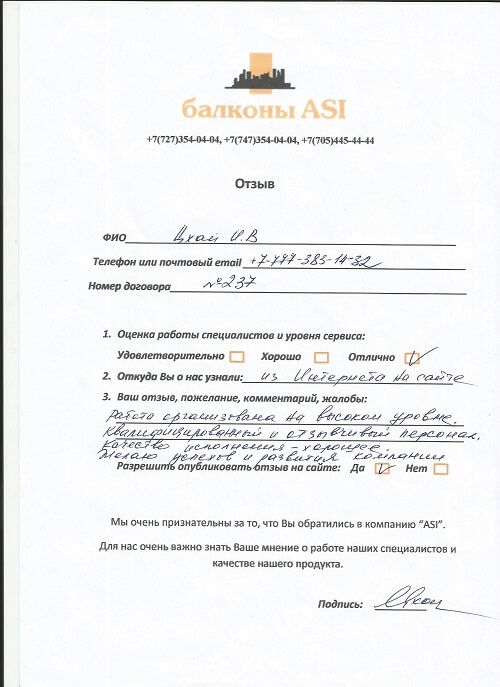 балконы ASI
+7(727)354-04-04, +7(747)354-04-04, +7(705)445-44-44
Отзыв
ФИО Цхай И.В
Телефон или почтовый email +7-777-383-14-32
Номер договора №237
1. Оценка работы специалистов и уровня сервиса:
Удовлетворительно Хорошо Отлично
2. Откуда Вы о нас узнали: из Интернета на сайте
3. Ваш отзыв, пожелание, комментарий, жалобы:
Работа организована на высоком уровне.
Квалифицированный и отзывчивый персонал.
Качество исполнения - хорошее.
Желаю успехов и развития компании
Разрешить опубликовать отзыв на сайте: Да Нет
Мы очень признательны за то, что Вы обратились в компанию “ASI”.
Для нас очень важно знать Ваше мнение о работе наших специалистов и
качестве нашего продукта.
Подпись: